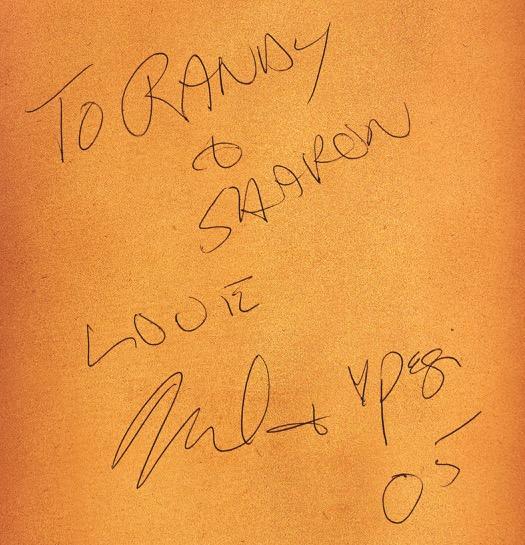 TO RANDY
+
SHARON
LOVE
05